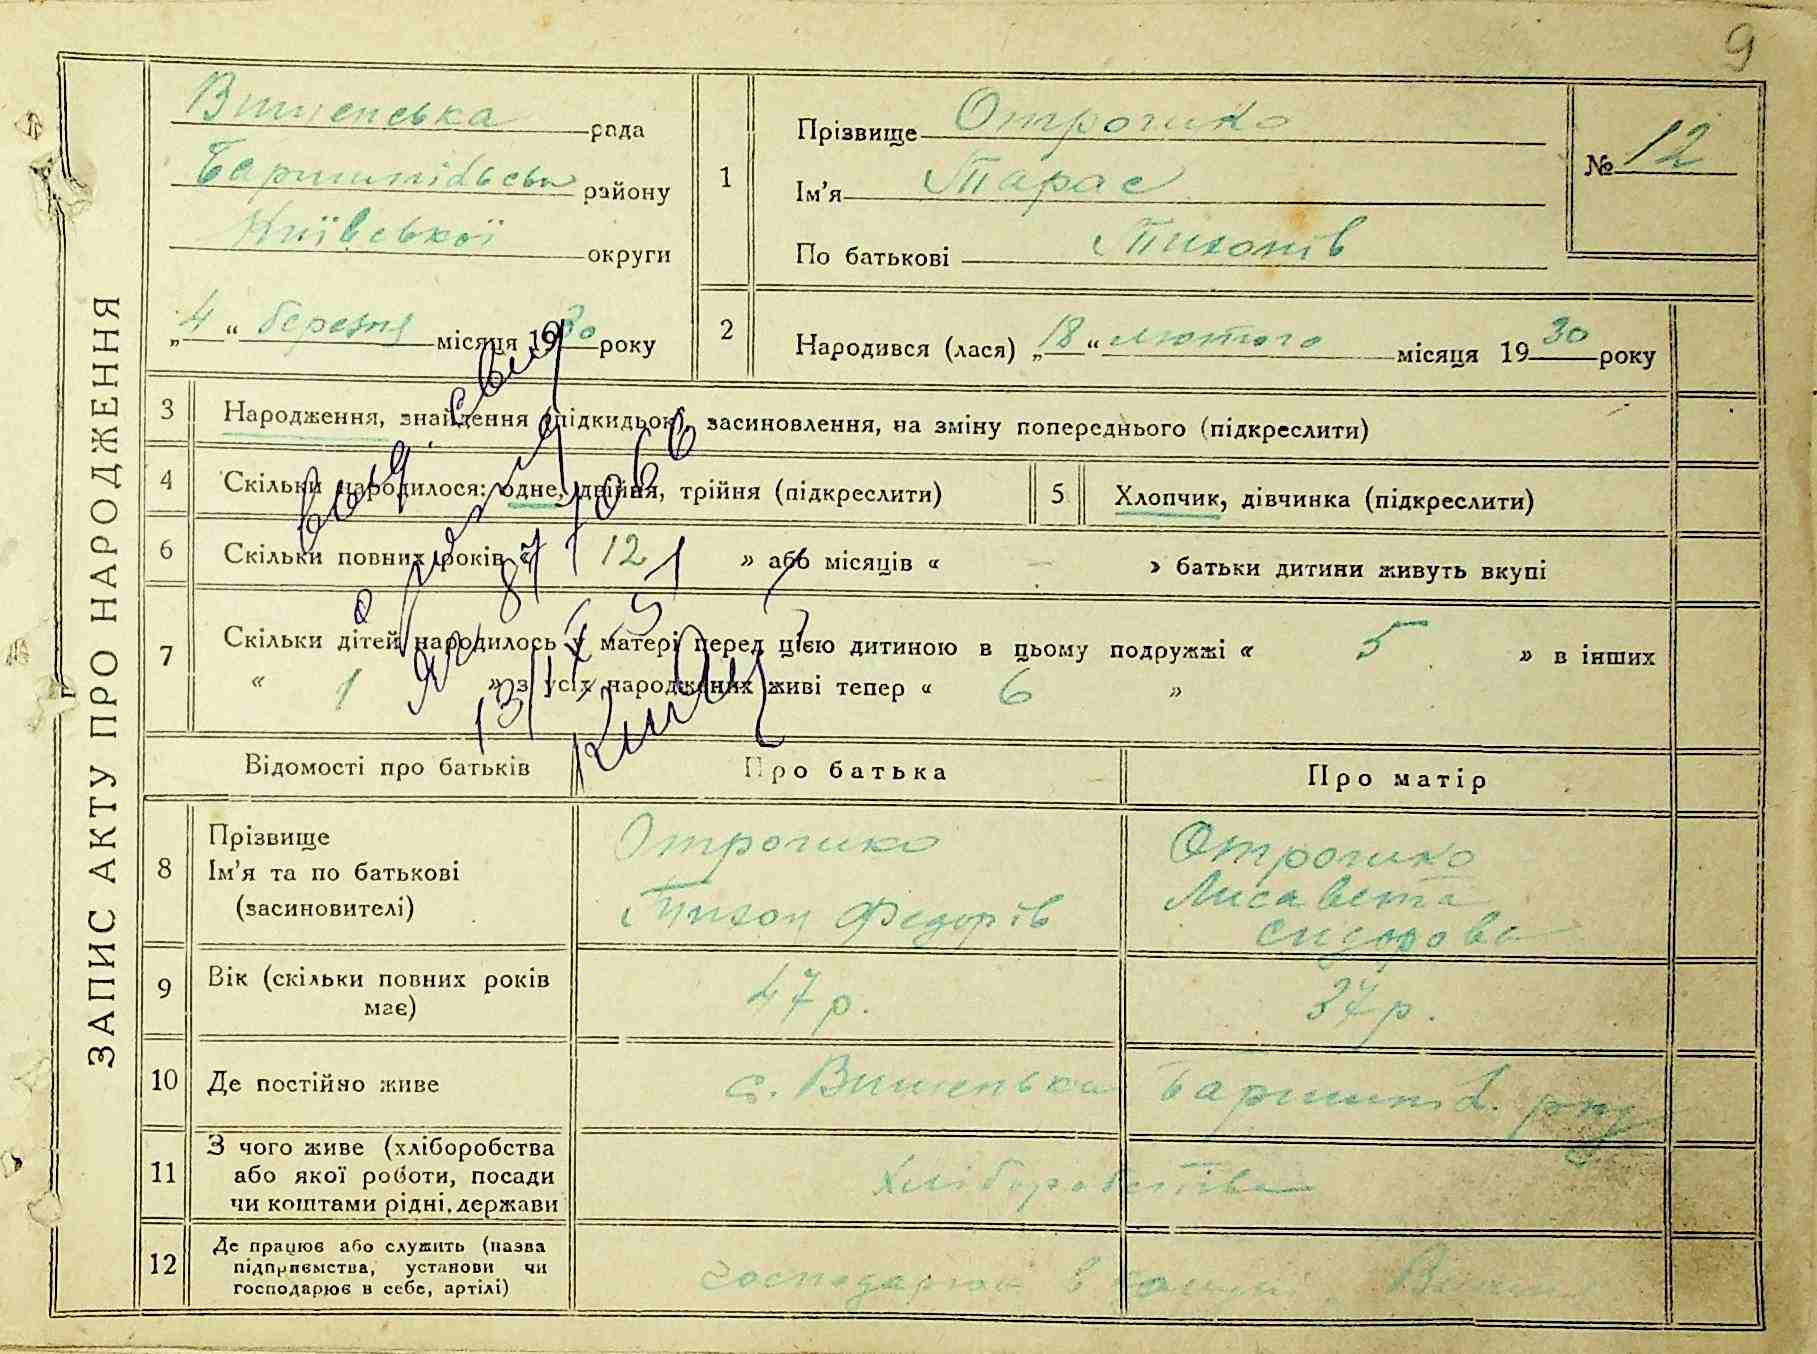 9
ЗАПИС АКТУ ПРО НАРОДЖЕННЯ
Вишенська рада
Баришпільськ району
Київської округи
„4“ березня місяця 1930 року
1
Прізвище Отрошко
Ім’я Тарас
По батькові Тихонів
№ 12
2
Народився (лася) „18“ лютого місяця 1930 року
3 Народження, знайдення (підкидьок), засиновлення, на зміну попереднього (підкреслити)
4 Скільки народилося: одне, двійня, трійня (підкреслити)
5 Хлопчик, дівчинка (підкреслити)
6 Скільки повних років « 12 » або місяців « – » батьки дитини живуть вкупі
7 Скільки дітей народилось у матері перед цією дитиною в цьому подружжі « 5 » в інших
« 1 » з усіх народжених живі тепер « 6 »
Відомості про батьків Про батька Про матір
8 Прізвище
Ім’я та по батькові
(засиновителі)
Отрошко
Тихон Федорів
Отрошко
Лисавета
Сидорова
9 Вік (скільки повних років
має)
47 р. 37 р.
10 Де постійно живе с. Вишенька
11 З чого живе (хліборобства
або якої роботи, посади
чи коштами рідні, держави
Хліборобства
12 Де працює або служить (назва
підприємства, установи чи
господарює в себе, артілі)
господарює в